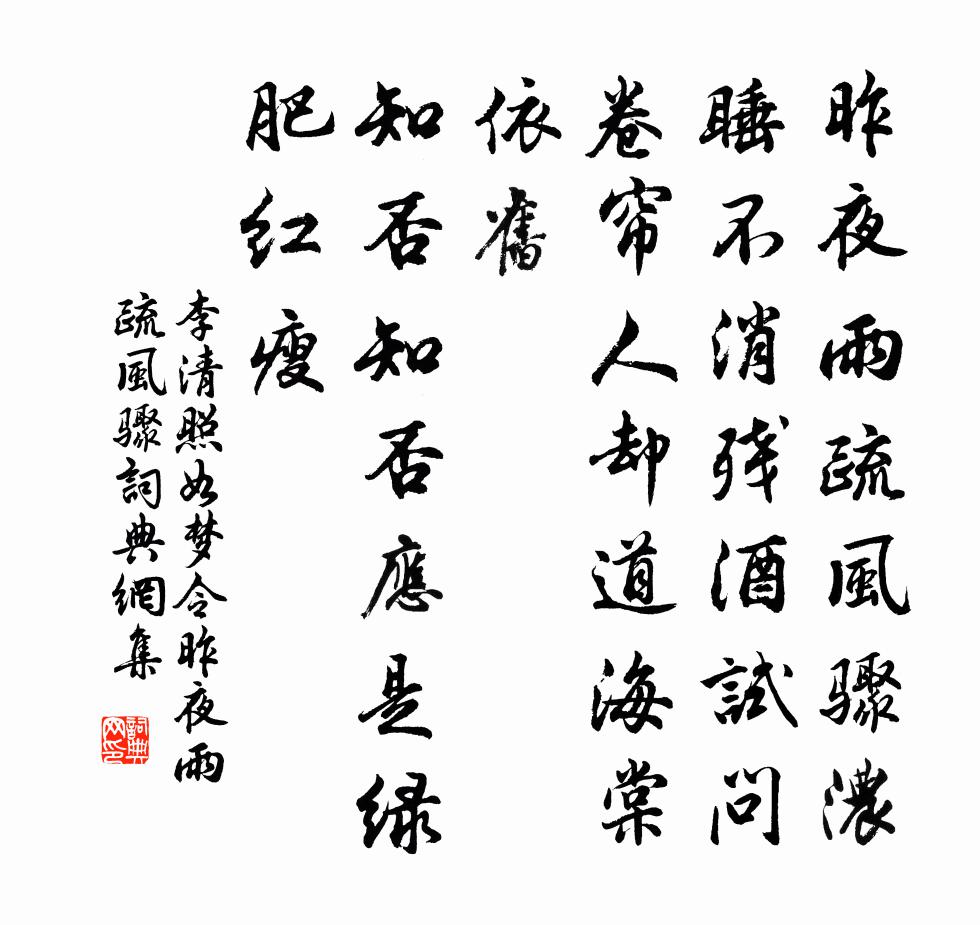 昨夜雨疏风骤濃
睡不消残酒試問
卷帘人却道海棠
依舊
知否知否應是绿
肥红瘦
李清照如梦令昨夜雨
疏風骤詞典網集
詞典
网印